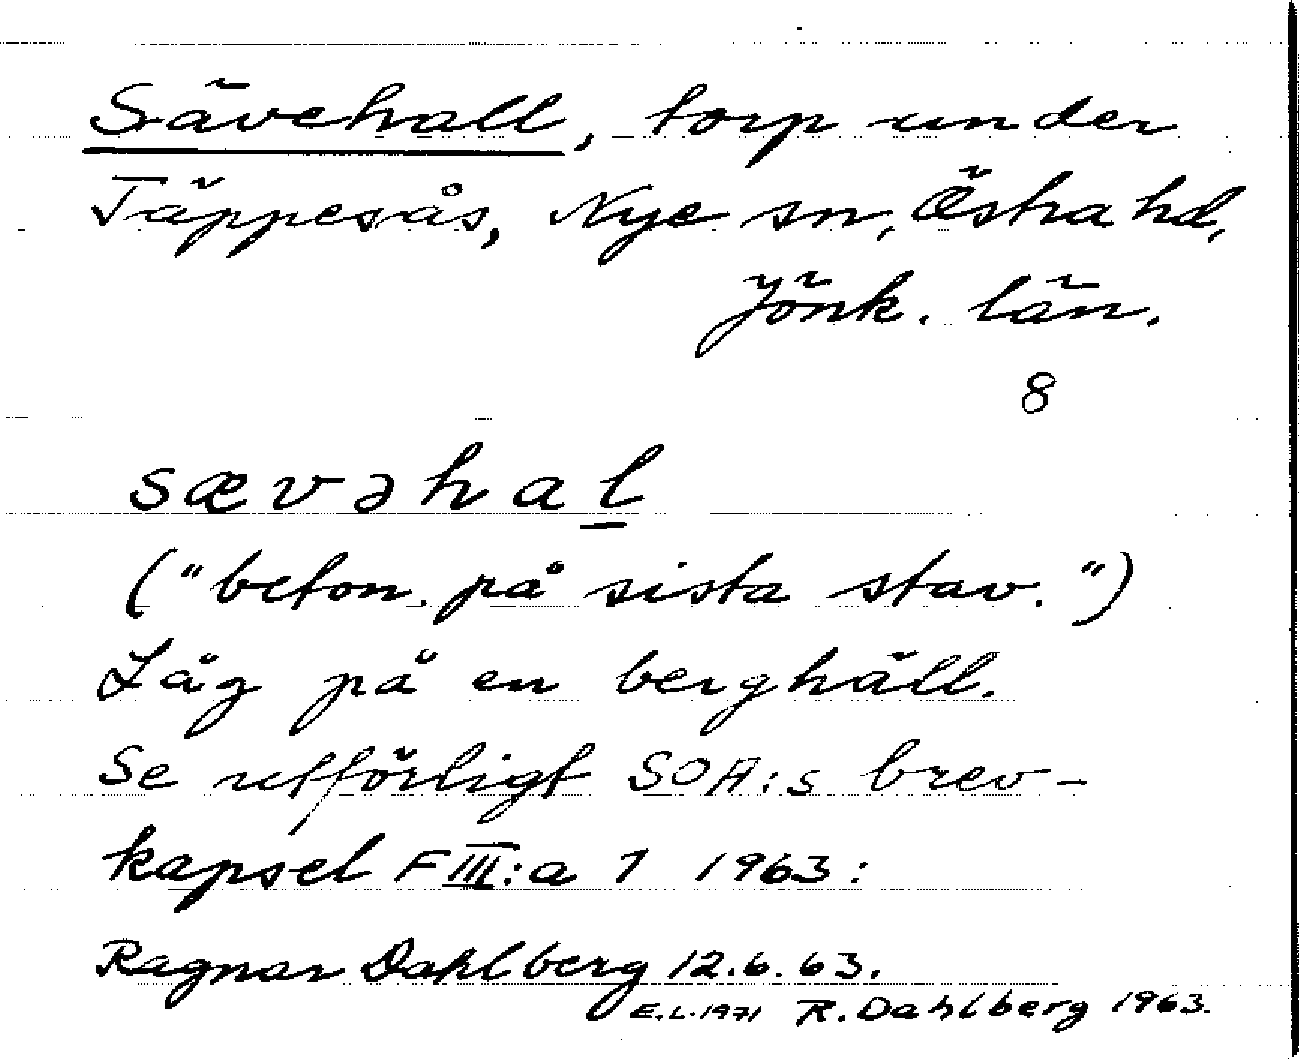 Sävehall, torp under
Täppesås, Nye sn, Östra hd,
Jönk. län.
8
sævəhal
("beton. på sista stav.")
Låg på en berghäll.
Se utförligt SOA:s brev-
kapsel F III:a 1 1963:
Ragnar Dahlberg 12.6.63.
E.L. 1971 R. Dahlberg 1963.